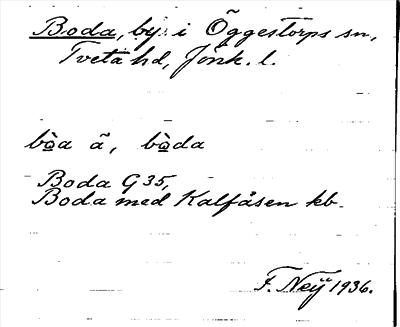 Boda, by i Öggestorps sn,
Tveta hd, Jönk. l.
bo̲̊a ã, bò̲da
Boda G 35,
Boda med Kalfåsen kb.
F. Neij 1936.